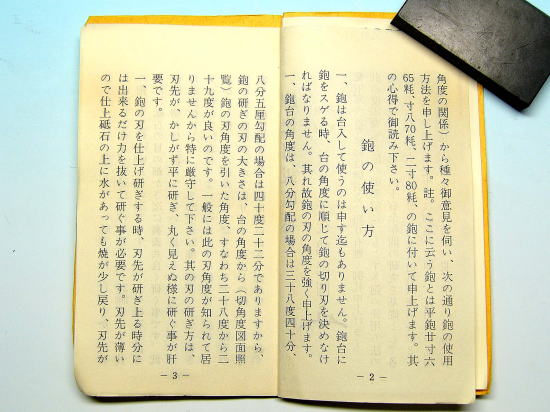 角度の関係）から種々御意見を伺い、次の通り鉋の使用
方法を申し上げます。註。ここに云う鉋とは平鉋廿寸六
65粍、寸八70粍、二寸80粍、の鉋に付いて申上げます。其
の心得で御読み下さい。
鉋の使い方
一、鉋は台入して使うのは申す迄もありません。鉋台に
鉋をスゲる時、台の角度に順じて鉋の切り刃を決めなけ
ればなりません。其れ故鉋の刃の角度を強く申上げます。
一、鉋台の角度は、八分勾配の場合は三十八度四十分、
－2－
八分五厘勾配の場合は四十度二十二分でありますから、
鉋の研ぎの刃の大きさは、台の角度から（切角度図面照
覧）鉋の刃角度を引いた角度、すなわち二十八度から二
十九度が良いのです。一般には此の刃角度が知られて居
りませんから特に厳守して下さい。其の刃の研ぎ方は、
刃先が、かしがず平に研ぎ、丸く見えぬ様に研ぐ事が肝
要です。
一、鉋の刃を仕上げ研ぎする時、刃先が研ぎ上る時分に
は出来るだけ力を抜いて研ぐ事が必要です。刃先が薄い
ので仕上砥石の上に水があっても焼が少し戻り、刃先が
－3－